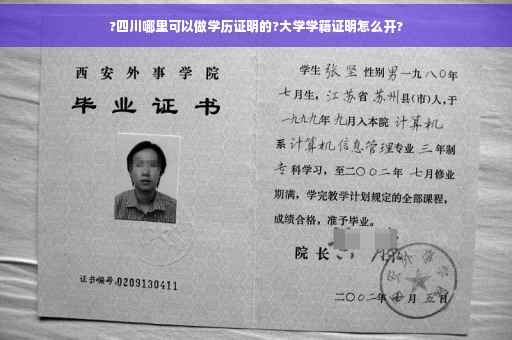 ?四川哪里可以做学历证明的?大学学籍证明怎么开?
西安外事学院
毕业证书
证书编号:0209130411
学生 张坚 性别 男 一九八〇年
七月生, 江苏省 苏州县(市)人,于
一九九九年 九月入本院 计算机
系 计算机信息管理专业 三 年制
专 科学习, 至二〇〇二年 七月修业
期满, 学完教学计划规定的全部课程,
成绩合格, 准予毕业。
院长
二〇〇二年 月 五日